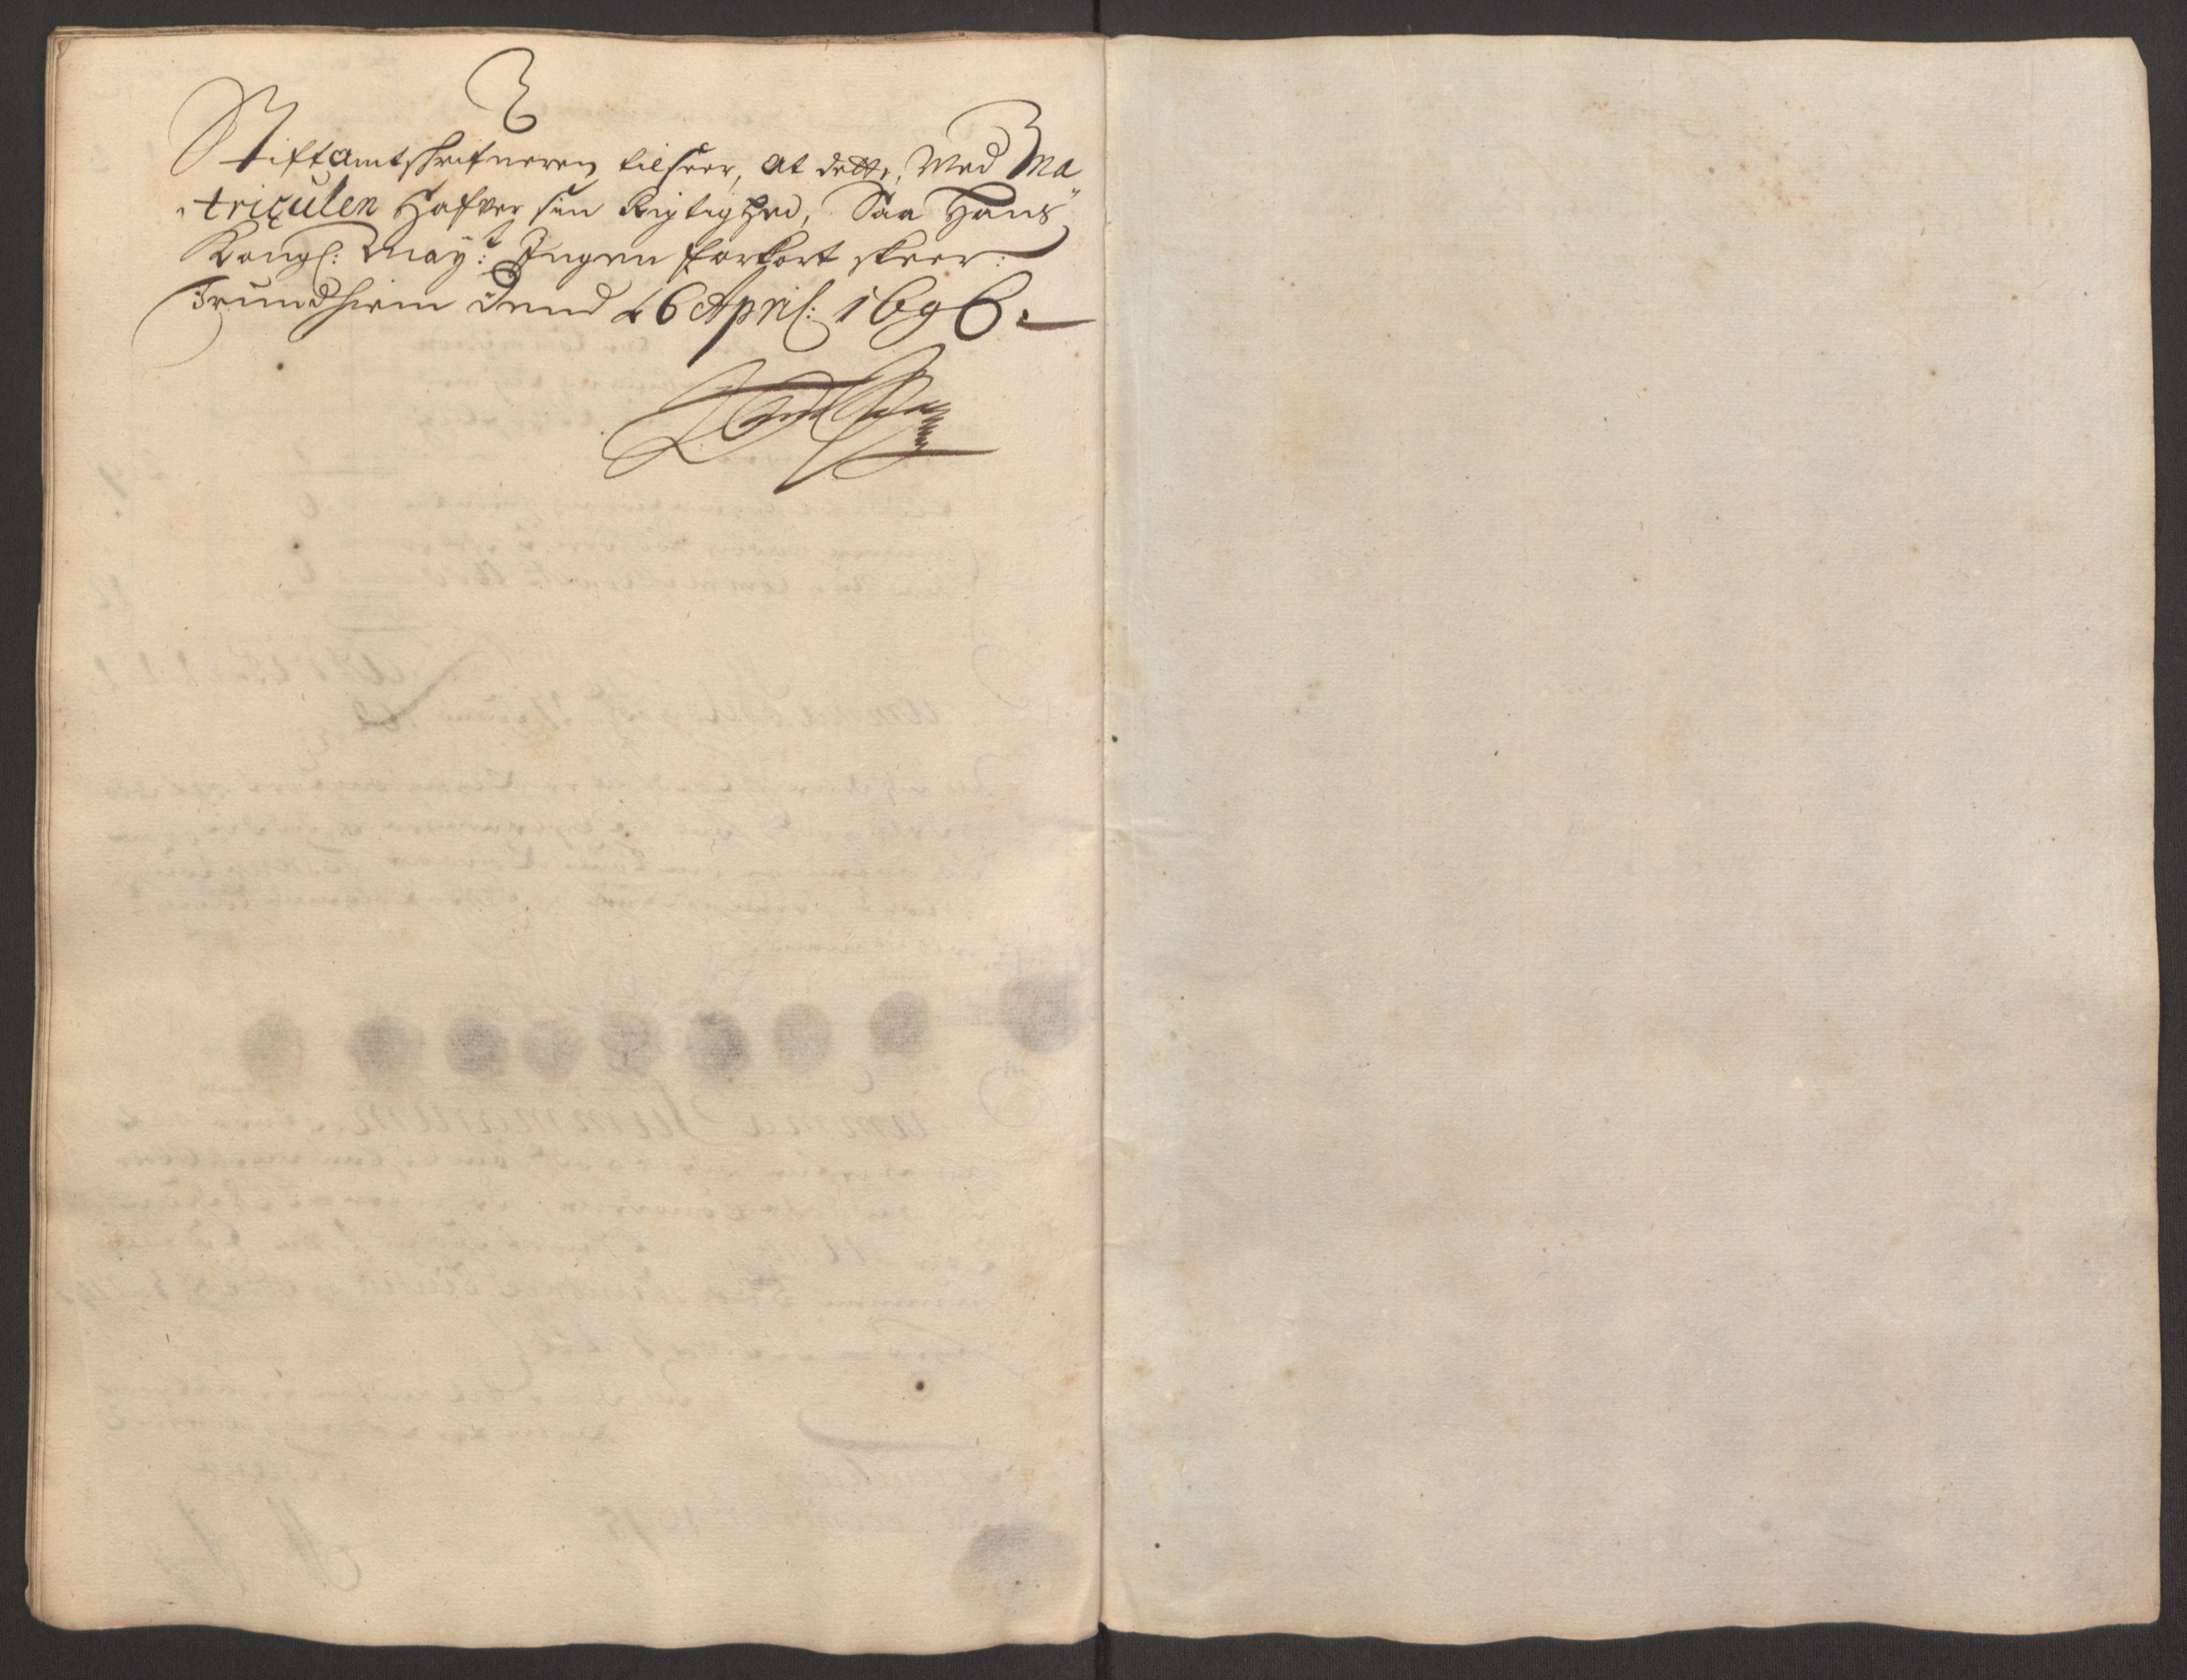 Stiftamtschrifveren tilseer, at dette, Med Ma
triculen Hafver sin Rigtighed, Saa Hans
Kongl: May:t Ingen forkort skeer:
Trundhiem dend 26 April: 1696.